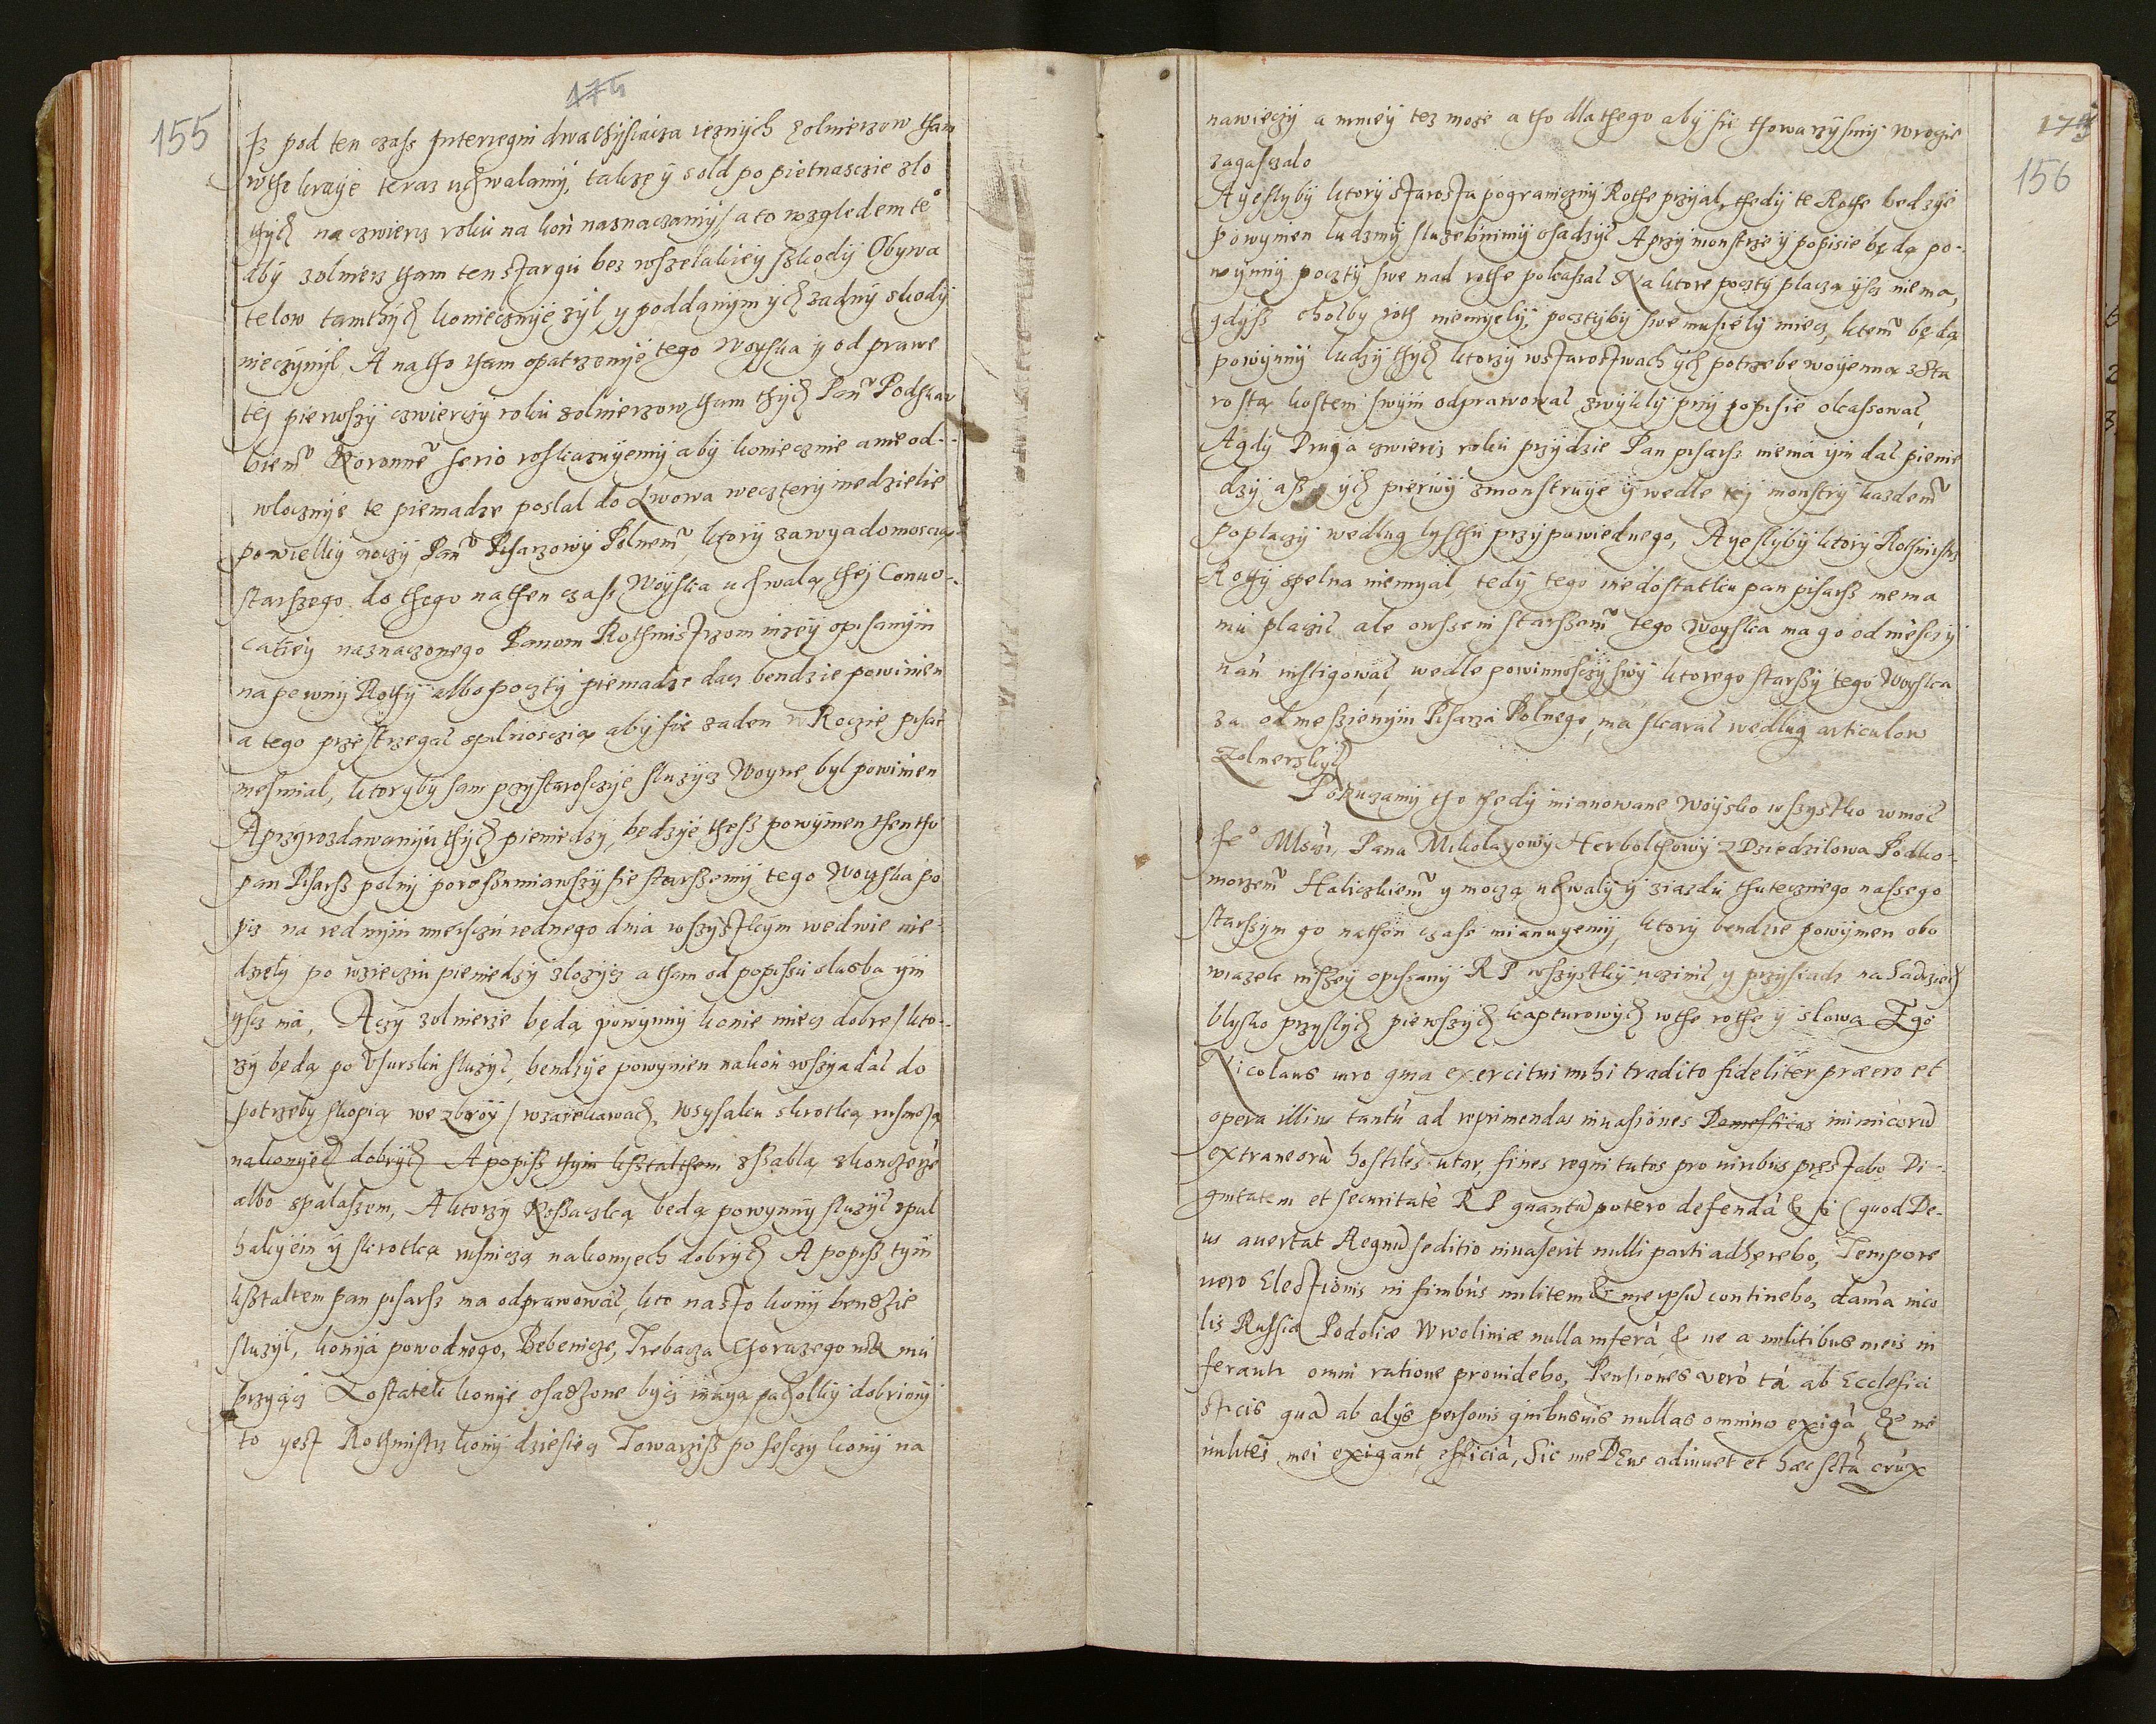 174
155
Jz pod ten czass Interregni dwa thyssiacza ieznych zolnierzow tham
wthe kraye teraz uchwalamy, takze y sold po pietnascie zlo
thych na czwierz roku na kon naznaczamy / a to wzgledem te°
aby zolnierz tham ten s targu bez wszelakiey szkody Obywa
telow tamthych koniecznye zyl y poddanym ych zadny skody
nieczynyl. A na tho tham opatrzenye tego Woyska y od prawe
tej pierwszy czwierczy roku zolnierzow tham thych Panu Podskar
biemu Koronnemu serio roskazuyemy aby koniecznie a nie od-
wlocznye te pieniadze poslal do Lwowa we cztery niedzielie
po wielkiy noczy Panu Pisarzowy Polnemu, ktory za wyadomoscia
starszego do thego na then czass Woyska uchwala thej Convo-
catiey naznaczonego Panom Rothmistrzom nizey opisanym
na pewny Rothy albo poczty pieniadze dacz bendzie powinien
a tego przestrzegac spilnosczia aby sie zaden w Roczie pisac
niesmial, ktoryby sam przy starosczye sluzycz Woyne byl powinien
A przy rozdawanyu thych pieniedzy, bedzye thesz powynien then tho
pan Pisarsz polny porossumiawszy sie starszemy tego Woyska po
pis na iednym miesczu iednego dnia wszystkym we dwie nie-
dzely po wzieczin pieniedzy zlozycz a tham od popissu sluzba ym
ysc ma. A czy zolnierze będą powynny konie miecz dobre / kto-
rzy będą po Usursku sluzyc, bendzye powynien na kon wszyadac do
potrzeby skopia we zbroy / w zarekawach, w syssaku skrotką rusnicą
na konyech dobrych A popiss thym ksztalthem z szabla z konczerze
albo spalaszem, A ktorzy Kossaczka beda powynny sluzyc spul
hakyem y skrotka rusnicza na konyech dobrych A popisz tym
ksztaltem pan pisarsz ma odprawowac, kto na sto kony bendzie
sluzyl, konya powodnego, Bebenicze, Trebacza Chorazego ma mu
przyącz Lostatek konye osadzone bycz maya pacholky dobrimy
to yest Rothmistrz kony dziesiecz Towarzisz po sesczy kony na
175
156
nawieczy a mniey tez moze a tho dla thego aby sie thowarzysmy w rocie
zagasczalo
A yeslyby ktory starosta pograniczny Rothe przyal, thedy te Rothe bedzye
powynien ludzmy sluzebnimy osadzyc A przy monstrze y popisie będą po-
wynny poczty swe nad rothe pokaszac Na ktore poczty placza ysc niema,
gdysz chocby roth niemyely, pocztyby swe musiely miecz, ktemu będą
powynny ludzy thych ktorzy w starostwach ych potrzebe woyenna z sta
rosta kostem swym odprawowac zwykly przy popisie okassowac
A gdy Druga czwierz roku przydzie Pan pisarsz niema ym dac pienie
dzy asz ych pierwy zmonstruye y wedle tej monstry kazdemu
poplaczy wedlug lysthu przypowiednego, A yeslyby ktory Rothmistrz
Rothy spelna niemyal, tedy tego niedostatku pan pisarsz nie ma
mu placzic ale owszem starszemu tego Woyska ma go odniesczy
nan instigowac, wedle powinnosczy swy ktorego starszy tego Woyska
za odniessienym Pisarza Polnego, ma skarac wedlug articulow
zolnerzskych
Poruczamy tho thedy mianowane woysko wszystko w moc
Je° Msczi, Pana Mikolayowy Herbolthowy z Dziedzilowa Podko-
morzemu Haliczkiemu y mocza uchwaly y ziazdu thutecznego nassego
starszym go nathen czass mianuyemy, ktory bendzie powynien obo
wiazek niszey opisany RP wszystkiy uczinic, y przysiadz na Sadziech
blysko przyslych pierwszych kapturowych w the rothe y slowa Ego
Nicolaus iuro quia exercitui mihi tradito fideliter præero et
opera illius tantu ad reprimendas invasiones Domesticas inimicoru
extraneoru hostiles utar, fines regni tutos pro viribus pręstabo Di-
gnitatem et securitate RP quantu potero defenda & si (quod De-
us avertat Regnu seditio invaserit nulli parti adhęrebo, Tempore
vero Electionis in finibus militem & meipsu continebo, damna inco
lis Russiæ Podoliæ Wwoliniæ nulla infera & ne a militibus meis in
ferantr omni ratione providebo, Pensiones vero ta ab Ecclesia
sticis qua ab alys personis quibusvis nullas omnino exiga, & ne
milites mei exigant efficia, Sic me DEus adiuvet et hæc scta crux